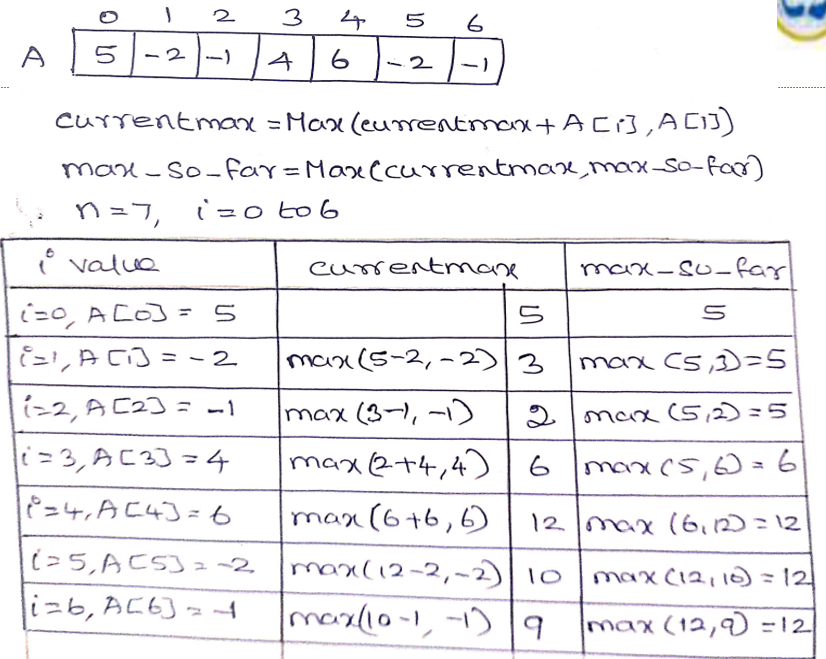 0 1 2 3 4 5 6
A 5 -2 -1 4 6 -2 -1
currentmax = Max(currentmax + A[i], A[i])
max-so-far = Max(currentmax, max-so-far)
n=7, i=0 to 6
i value currentmax max-so-far
i=0, A[0] = 5 5 5
i=1, A[1] = -2 max(5-2, -2) 3 max (5,3)=5
i=2, A[2] = -1 max (3-1, -1) 2 max (5,2) =5
i=3, A[3] = 4 max(2+4,4) 6 max(5,6) = 6
i=4, A[4] = 6 max(6+6,6) 12 max (6,12) = 12
i=5, A[5] = -2 max(12-2,-2) 10 max(12,10) = 12
i=6, A[6] = -1 max(10-1, -1) 9 max(12,9) =12